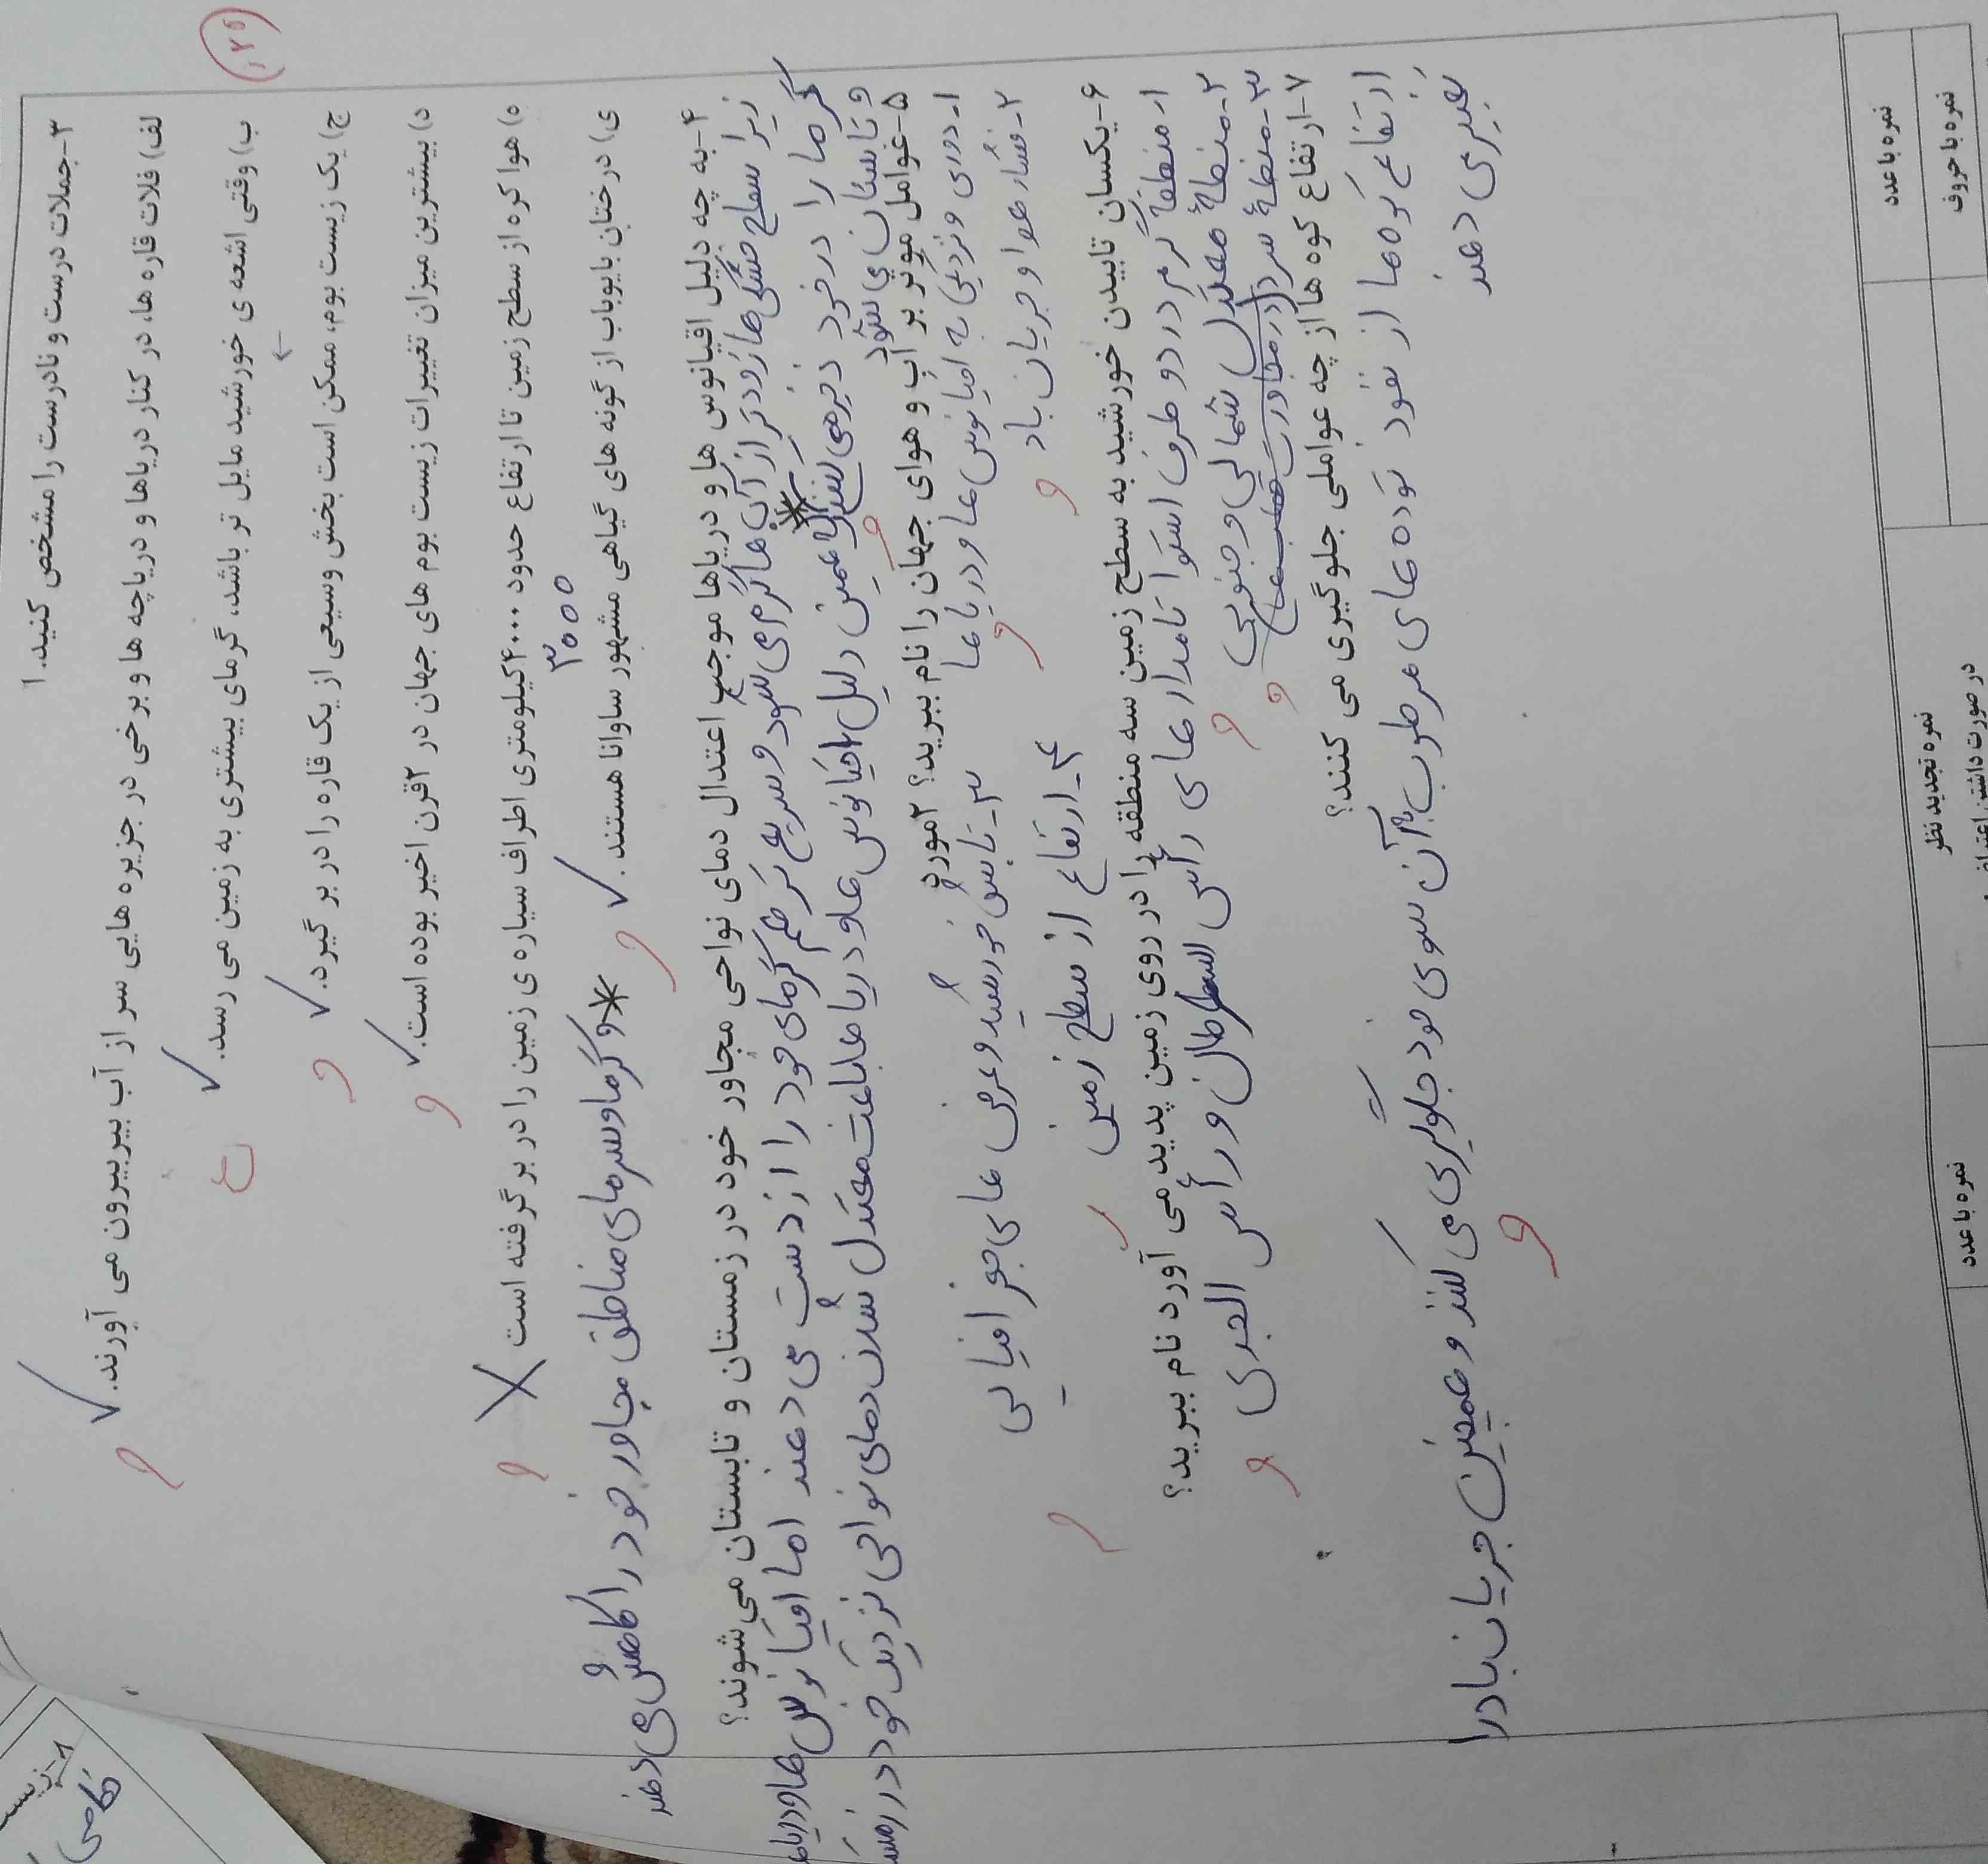 ۳-جملات درست و نادرست را مشخص کنید.۱
لف) فلات قاره ها، در کنار دریاها و دریاچه ها و برخی در جزیره هایی سر از آب بیربیرون می آورند. ✓
ب) وقتی اشعه ی خورشید مایل تر باشد، گرمای بیشتری به زمین می رسد. ✓
ج) یک زیست بوم، ممکن است بخش وسیعی از یک قاره را در بر گیرد. ✓
د) بیشترین میزان تغییرات زیست بوم های جهان در ۲قرن اخیر بوده است. ✓
ه) هوا کره از سطح زمین تا ارتفاع حدود ۴۰۰۰کیلومتری اطراف سیاره ی زمین را در بر گرفته است X
۳۰۰۰
ی) درختان بایوباب از گونه های گیاهی مشهور ساوانا هستند. ✓
*و گرما و سرمای مناطق مجاور خود را کاهش می دهند
۴-به چه دلیل اقیانوس ها و دریاها موجب اعتدال دمای نواحی مجاور خود در زمستان و تابستان می شوند؟
زیرا سطح خشکی ها زودتر از آب ها گرم می شود و سریع تر هم گرمای خود را از دست می دهند اما اقیانوس ها و دریاها
گرما را در خود ذخیره می کنند * به همین دلیل اقیانوس ها و دریاها باعث معتدل شدن دمای نواحی نزدیک خود در زمستان
و تابستان می شود
۵-عوامل موثر بر آب و هوای جهان را نام ببرید؟ ۲مورد
۱- دوری و نزدیکی به اقیانوس ها و دریاها ۳- تابش خورشید و عرض های جغرافیایی
۲- فشار هوا و جریان باد ۴- ارتفاع از سطح زمین
۶-یکسان تابیدن خورشید به سطح زمین سه منطقه را در روی زمین پدید می آورد نام ببرید؟
۱- منطقهٔ گرم در دو طرف استوا تا مدار های رأس السرطان و رأس الجدی
۲- منطقهٔ معتدل شمالی و جنوبی
۳- منطقهٔ سرد (در مجاورت قطب ها)
۷-ارتفاع کوه ها از چه عواملی جلوگیری می کنند؟
ارتفاع کوه ها از نفوذ توده های مرطوب به آن سوی خود جلوگیری می کنند و همچنین جریان باد را
تغییری دهند
نمره با عدد
نمره با حروف
نمره تجدید نظر
در صورت داشتن اعتراض
نمره با عدد